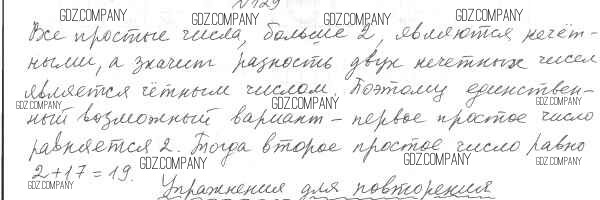 №129
GDZ.COMPANY GDZ.COMPANY GDZ.COMPANY GDZ.COMPANY
Все простые числа, больше 2, являются нечёт-
ными, а значит разность двух нечетных чисел
является чётным числом. Поэтому единствен-
GDZ.COMPANY GDZ.COMPANY GDZ.COMPANY
ный возможный вариант – первое простое число
равняется 2. Тогда второе простое число равно
GDZ.COMPANY GDZ.COMPANY
2+17=19.
GDZ.COMPANY GDZ.COMPANY
Упражнения для повторения